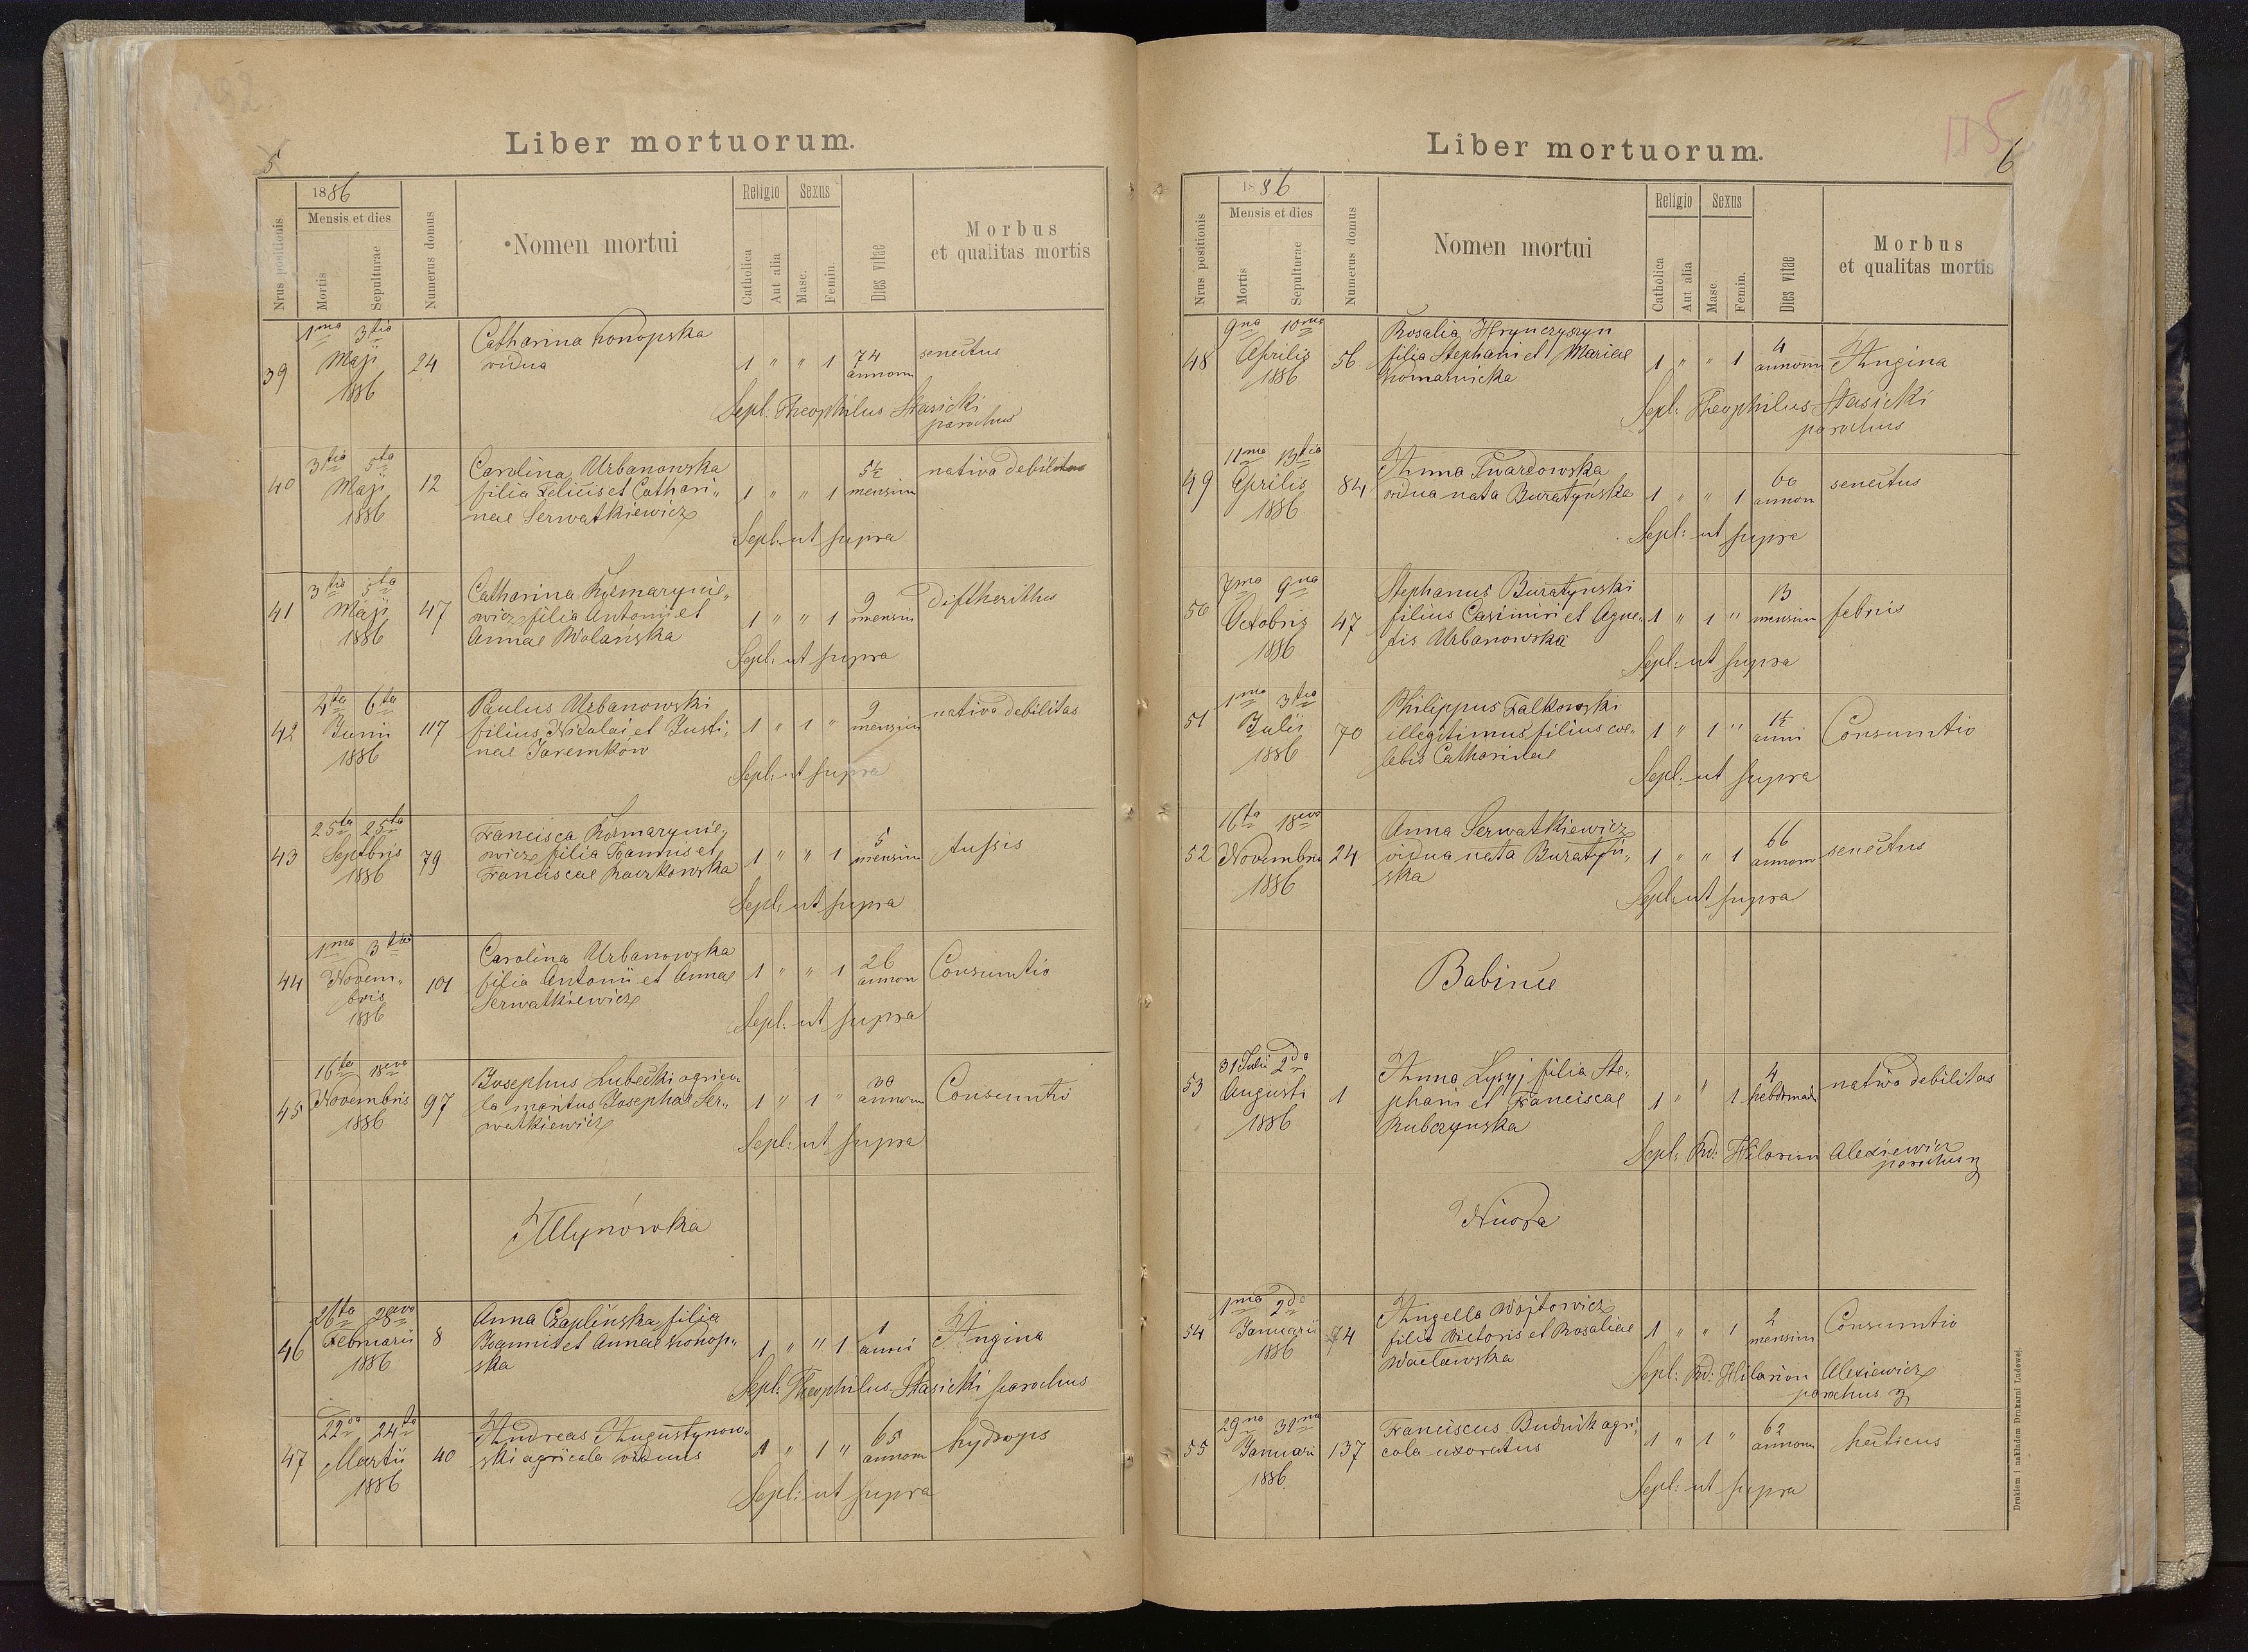 5
Liber mortuorum.
Nrus positionis
1886
Mensis et dies
Mortis
Sepulturae
Numerus domus
Nomen mortui
Religio
Catholica
Aut alia
Sexus
Masc.
Femin.
Dies vitae
Morbus
et qualitas mortis
39
1ma 3tia
Maji
1886
24
Catharina Konopska
vidua
1 " " 1
74
annorum
senectus
Sepl: Theophilus Stasicki
parochus
40
3tia 5ta
Maji
1886
12
Carolina Urbanowska
filia Felicis et Cathari„
nae Serwatkiewicz
1 " " 1
5½
mensium
nativa debilitas
Sepl: ut supra
41
3tia 5ta
Maji
1886
47
Catharina Kuzmarynie„
wicz filia Antonii et
Annae Wolańska
1 " " 1
9
mensium
Diftherithis
Sepl: ut supra
42
4ta 6ta
Junii
1886
117
Paulus Urbanowski
filius Nicolai et Justi„
nae Jaremków
1 " 1 "
9
mensium
nativa debilitas
Sepl: ut supra
43
25ta 25ta
Septbris
1886
79
Francisca Kuzmarynie„
wicz filia Joannis et
Franciscae Raczkowska
1 " " 1
5
mensium
tussis
Sepl: ut supra
44
1ma 3tia
Novem„
bris
1886
101
Carolina Urbanowska
filia Antonii et Annae
Serwatkiewicz
1 " " 1
26
annorum
Consumtio
Sepl: ut supra
45
16ta 18eva
Novembris
1886
97
Josephus Lubecki agrico
la maritus Josephae Ser„
watkiewicz
1 " 1 "
annorum
Consumtio
Sepl: ut supra
Młynówka
46
26ta 28eva
Februarii
1886
8
Anna Czaplińska filia
Joannis et Annae Konop„
ska
1 " " 1
1
anni
Angina
Sepl: Theophilus Stasicki parochus
47
22da 24ta
Martii
1886
40
Andreas Augustynow„
ski agricola viduus
1 " 1 "
65
annorum
hydrops
Sepl: ut supra
115
6
Liber mortuorum.
Nrus positionis
1886
Mensis et dies
Mortis
Sepulturae
Numerus domus
Nomen mortui
Religio
Catholica
Aut alia
Sexus
Masc.
Femin.
Dies vitae
Morbus
et qualitas mortis
48
9na 10ma
Aprilis
1886
56
Rosalia Hrynczyszyn
filia Stephani et Mariae
Komarnicka
1 " " 1
4
annorum
Angina
Sepl: Theophilus Stasicki
parochus
49
11ma 13tia
Aprilis
1886
84
Anna Twardowska
vidua nata Buratyńska
1 " " 1
60
annorum
senectus
Sepl: ut supra
50
7ma 9na
Octobris
1886
47
Stephanus Buratyński
filius Casimiri et Agne„
tis Urbanowska
1 " 1 "
13
mensium
febris
Sepl: ut supra
51
1ma 3tia
Julii
1886
70
Philippus Falkowski
illegitimus filius coe„
lebis Catharinae
1 " 1 "
1½
anni
Consumtio
Sepl: ut supra
52
16ta 18eva
Novembris
1886
24
Anna Serwatkiewicz
vidua nata Buratyń„
ska
1 " " 1
66
annorum
senectus
Sepl: ut supra
Babińce
53
31 Julii 2da
Augusti
1886
1
Anna Lysyj filia Ste„
phani et Franciscae
Rubczynska
1 " " 1
4
hebdomad
nativa debilitas
Sepl: Rd: Hilarion Alexiewicz
parochus
Niwra
54
1ma 2da
Januarii
1886
74
Angella Wojtowicz
filia Victoris et Rosaliae
Wacławska
1 " " 1
2
mensium
Consumtio
Sepl: Rd: Hilarion Alexiewicz
parochus
55
29na 31ma
Januarii
1886
137
Franciscus Budnik agri„
cola uxoratus
1 " 1 "
62
annorum
hecticus
Sepl: ut supra
Drukiem i nakładem Drukarni Ludowej.